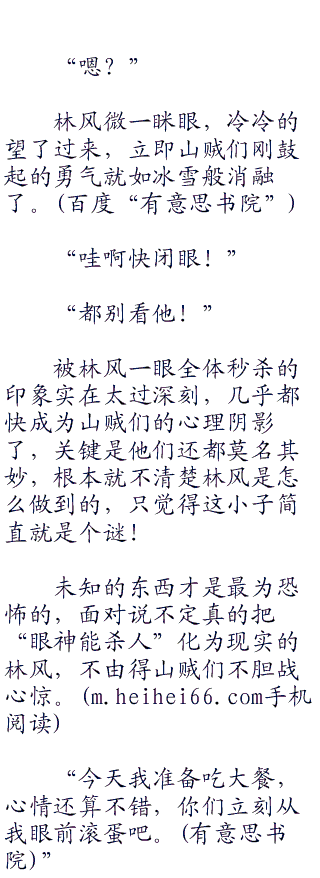 “嗯？”
林风微一眯眼，冷冷的
望了过来，立即山贼们刚鼓
起的勇气就如冰雪般消融
了。(百度“有意思书院”)
“哇啊快闭眼！”
“都别看他！”
被林风一眼全体秒杀的
印象实在太过深刻，几乎都
快成为山贼们的心理阴影
了，关键是他们还都莫名其
妙，根本就不清楚林风是怎
么做到的，只觉得这小子简
直就是个谜！
未知的东西才是最为恐
怖的，面对说不定真的把
“眼神能杀人”化为现实的
林风，不由得山贼们不胆战
心惊。(m.heihei66.com手机
阅读)
“今天我准备吃大餐，
心情还算不错，你们立刻从
我眼前滚蛋吧。(有意思书
院)”